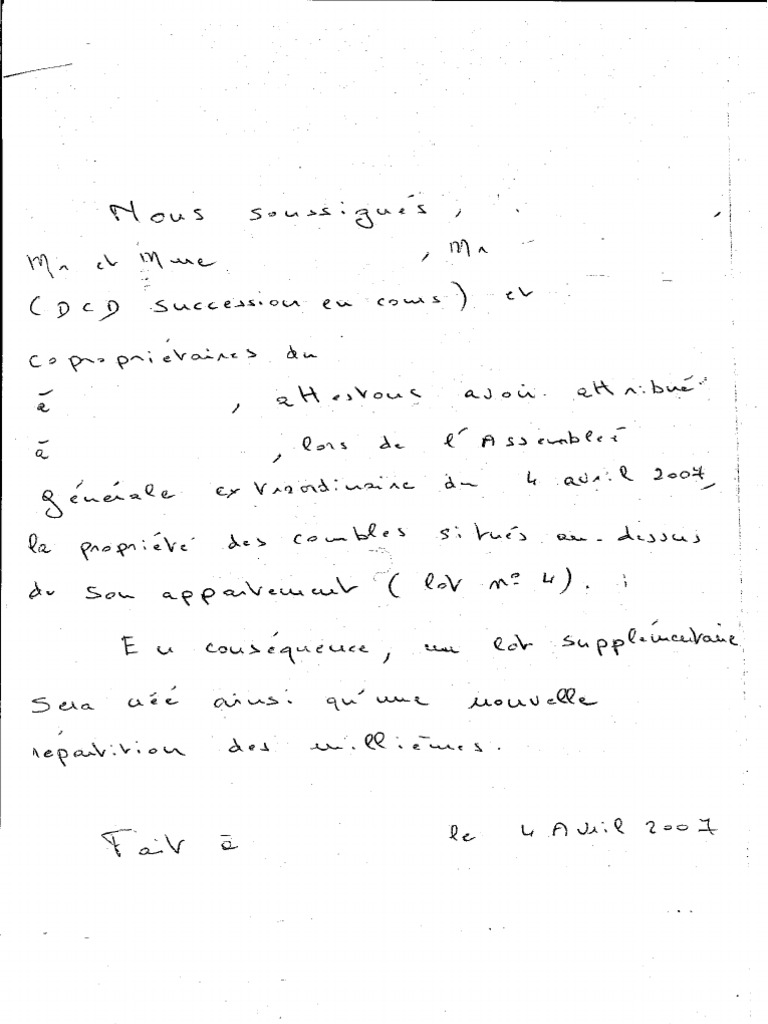 Nous soussignés, ,
Mr et Mme , Mr
(DCD succession en cours) et
copropriétaires du
à , attestons avoir attribué
à , lors de l'Assemblée
générale extraordinaire du 4 avril 2007,
la propriété des combles situés au-dessus
de son appartement (lot n° 4).
En conséquence, un lot supplémentaire
sera créé ainsi qu'une nouvelle
répartition des millièmes.
Fait à le 4 Avril 2007